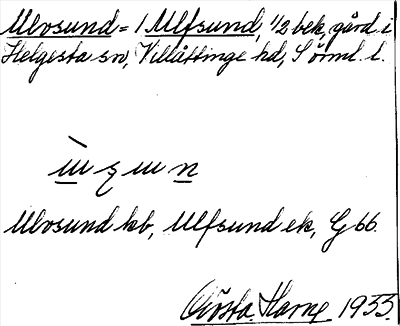 Ulvsund = 1 Ulfsund, 1/2 bek, gård i
Helgesta sn, Villåttinge hd, Sörml. l.
Ulvsund kb, Ulfsund ek, G 66.
Gösta Harne 1933.